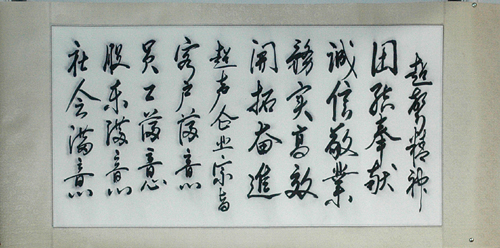 超聲精神
团结奉献
誠信敬業
務实高效
開拓奋進
超声企业宗旨
客户满意
员工满意
股东满意
社会满意